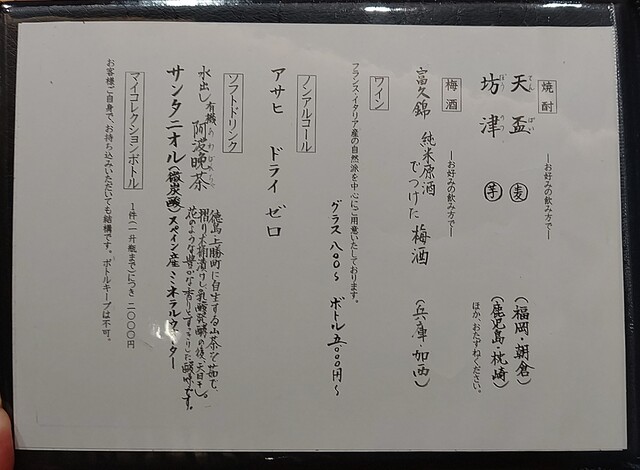 焼酎
―お好みの飲み方で―
天盃 麦 (福岡・朝倉)
坊津 芋 (鹿児島・枕崎)
ほか、おたずねください。
梅酒
―お好みの飲み方で―
富久錦 純米原酒でつけた梅酒 (兵庫・加西)
ワイン
フランス・イタリア産の自然派を中心にご用意いたしております。
グラス 八〇〇～ ボトル 五〇〇〇円～
ノンアルコール
アサヒ ドライ ゼロ
ソフトドリンク
水出し 有機 阿波晩茶
徳島・上勝町に自生する山茶を茹で、
摺り、木桶漬けし、乳酸発酵の後、天日干し。
花のような豊かな香りとすっきりした酸味です。
サンタニオル(微炭酸)スペイン産ミネラルウォーター
マイコレクションボトル 1件(一升瓶まで)につき 二〇〇〇円
お客様ご自身で、お持ち込みいただいても結構です。ボトルキープは不可。